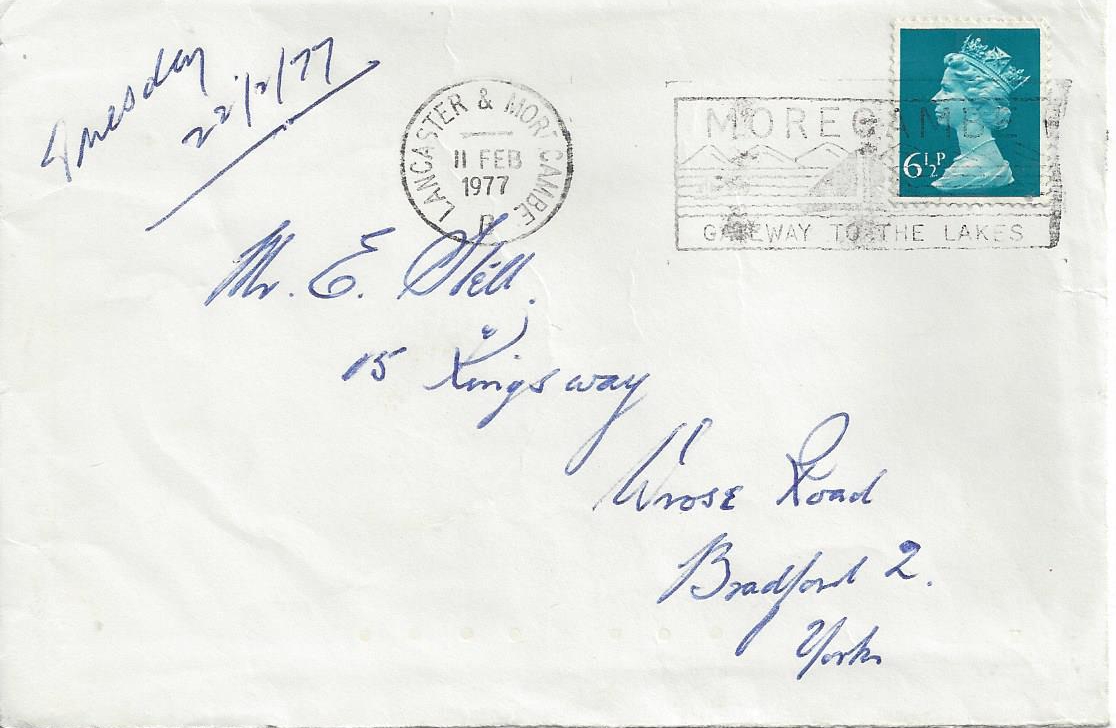 Tuesday
22/2/77
LANCASTER & MORECAMBE
11 FEB
1977
MORECAMBE
GATEWAY TO THE LAKES
6½P
Mr. E. Still.
15 Kingsway
Wrose Road
Bradford 2.
Yorks